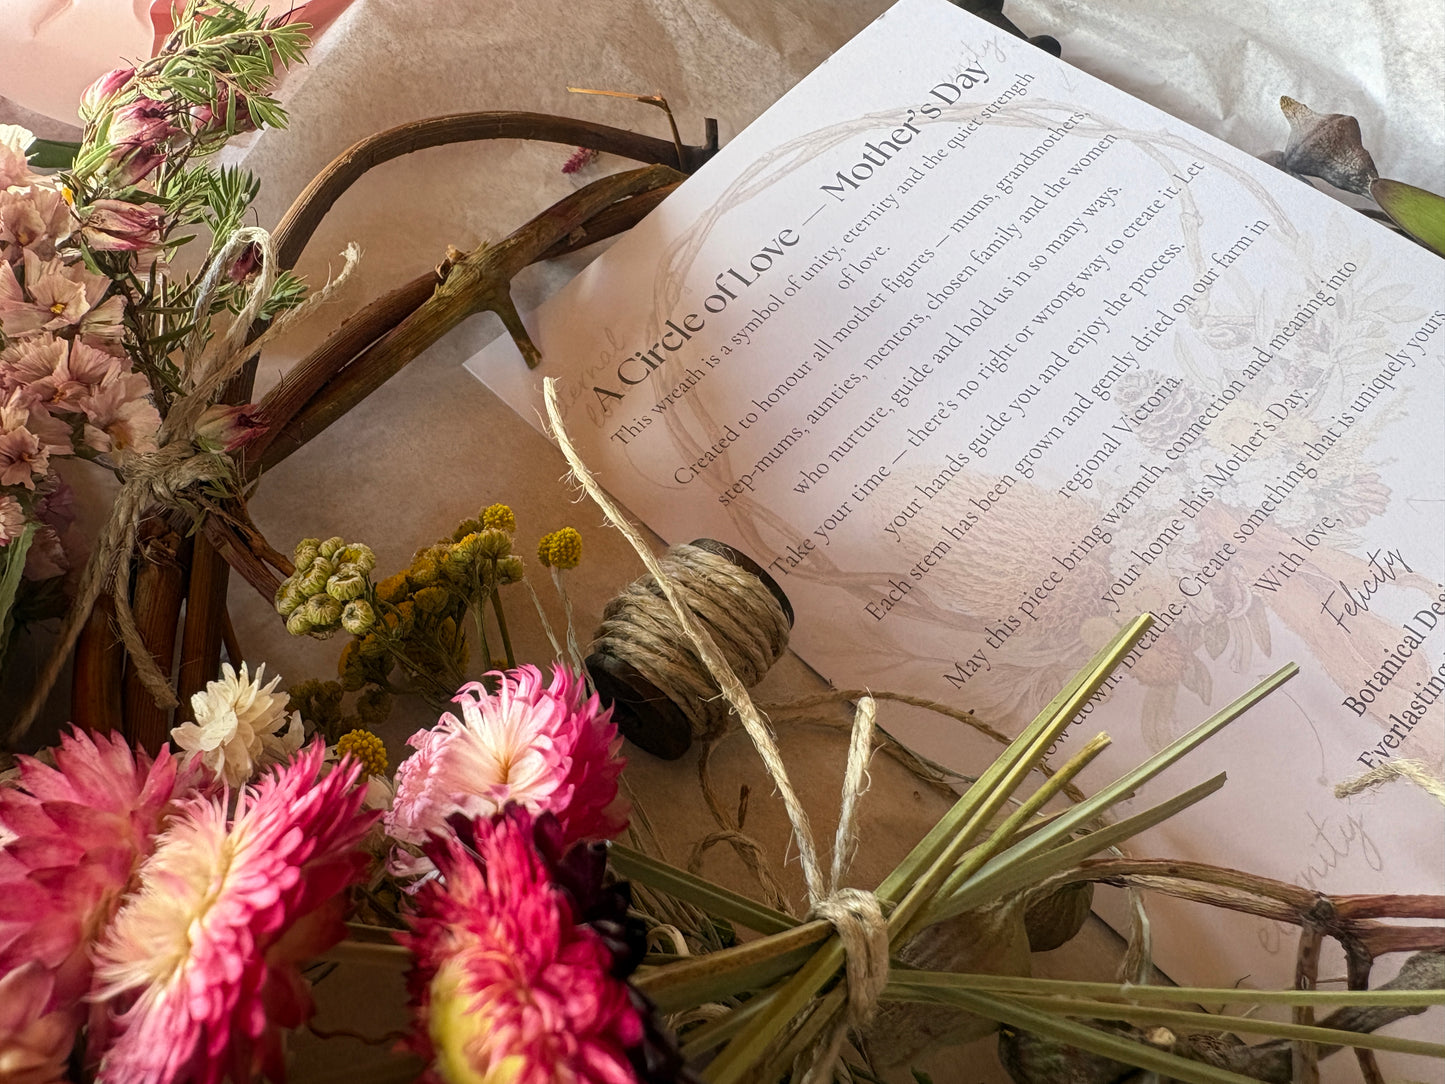 A Circle of Love — Mother's Day
This wreath is a symbol of unity, eternity and the quiet strength
of love.
Created to honour all mother figures — mums, grandmothers,
step-mums, aunties, mentors, chosen family and the women
who nurture, guide and hold us in so many ways.
Take your time — there's no right or wrong way to create it. Let
your hands guide you and enjoy the process.
Each stem has been grown and gently dried on our farm in
regional Victoria.
May this piece bring warmth, connection and meaning into
your home this Mother's Day.
down. breathe. Create something that is uniquely yours
With love,
Felicity
Botanical Desi
Everlasting
eternity